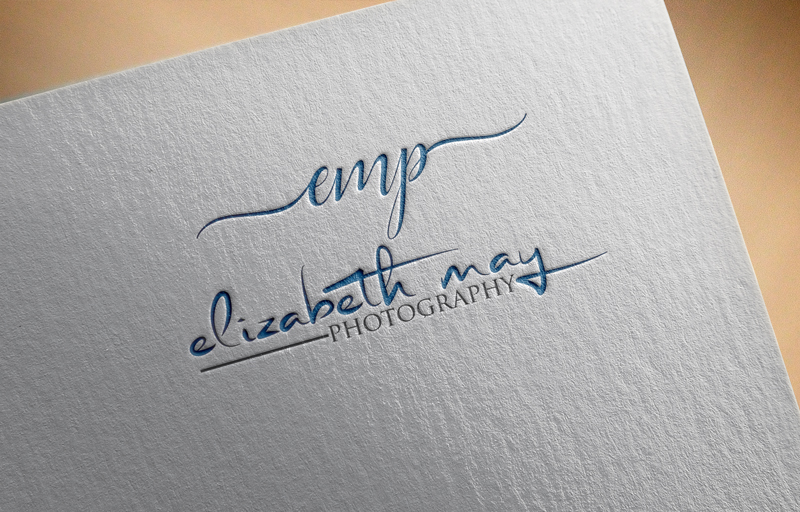 emp
elizabeth may
PHOTOGRAPHY